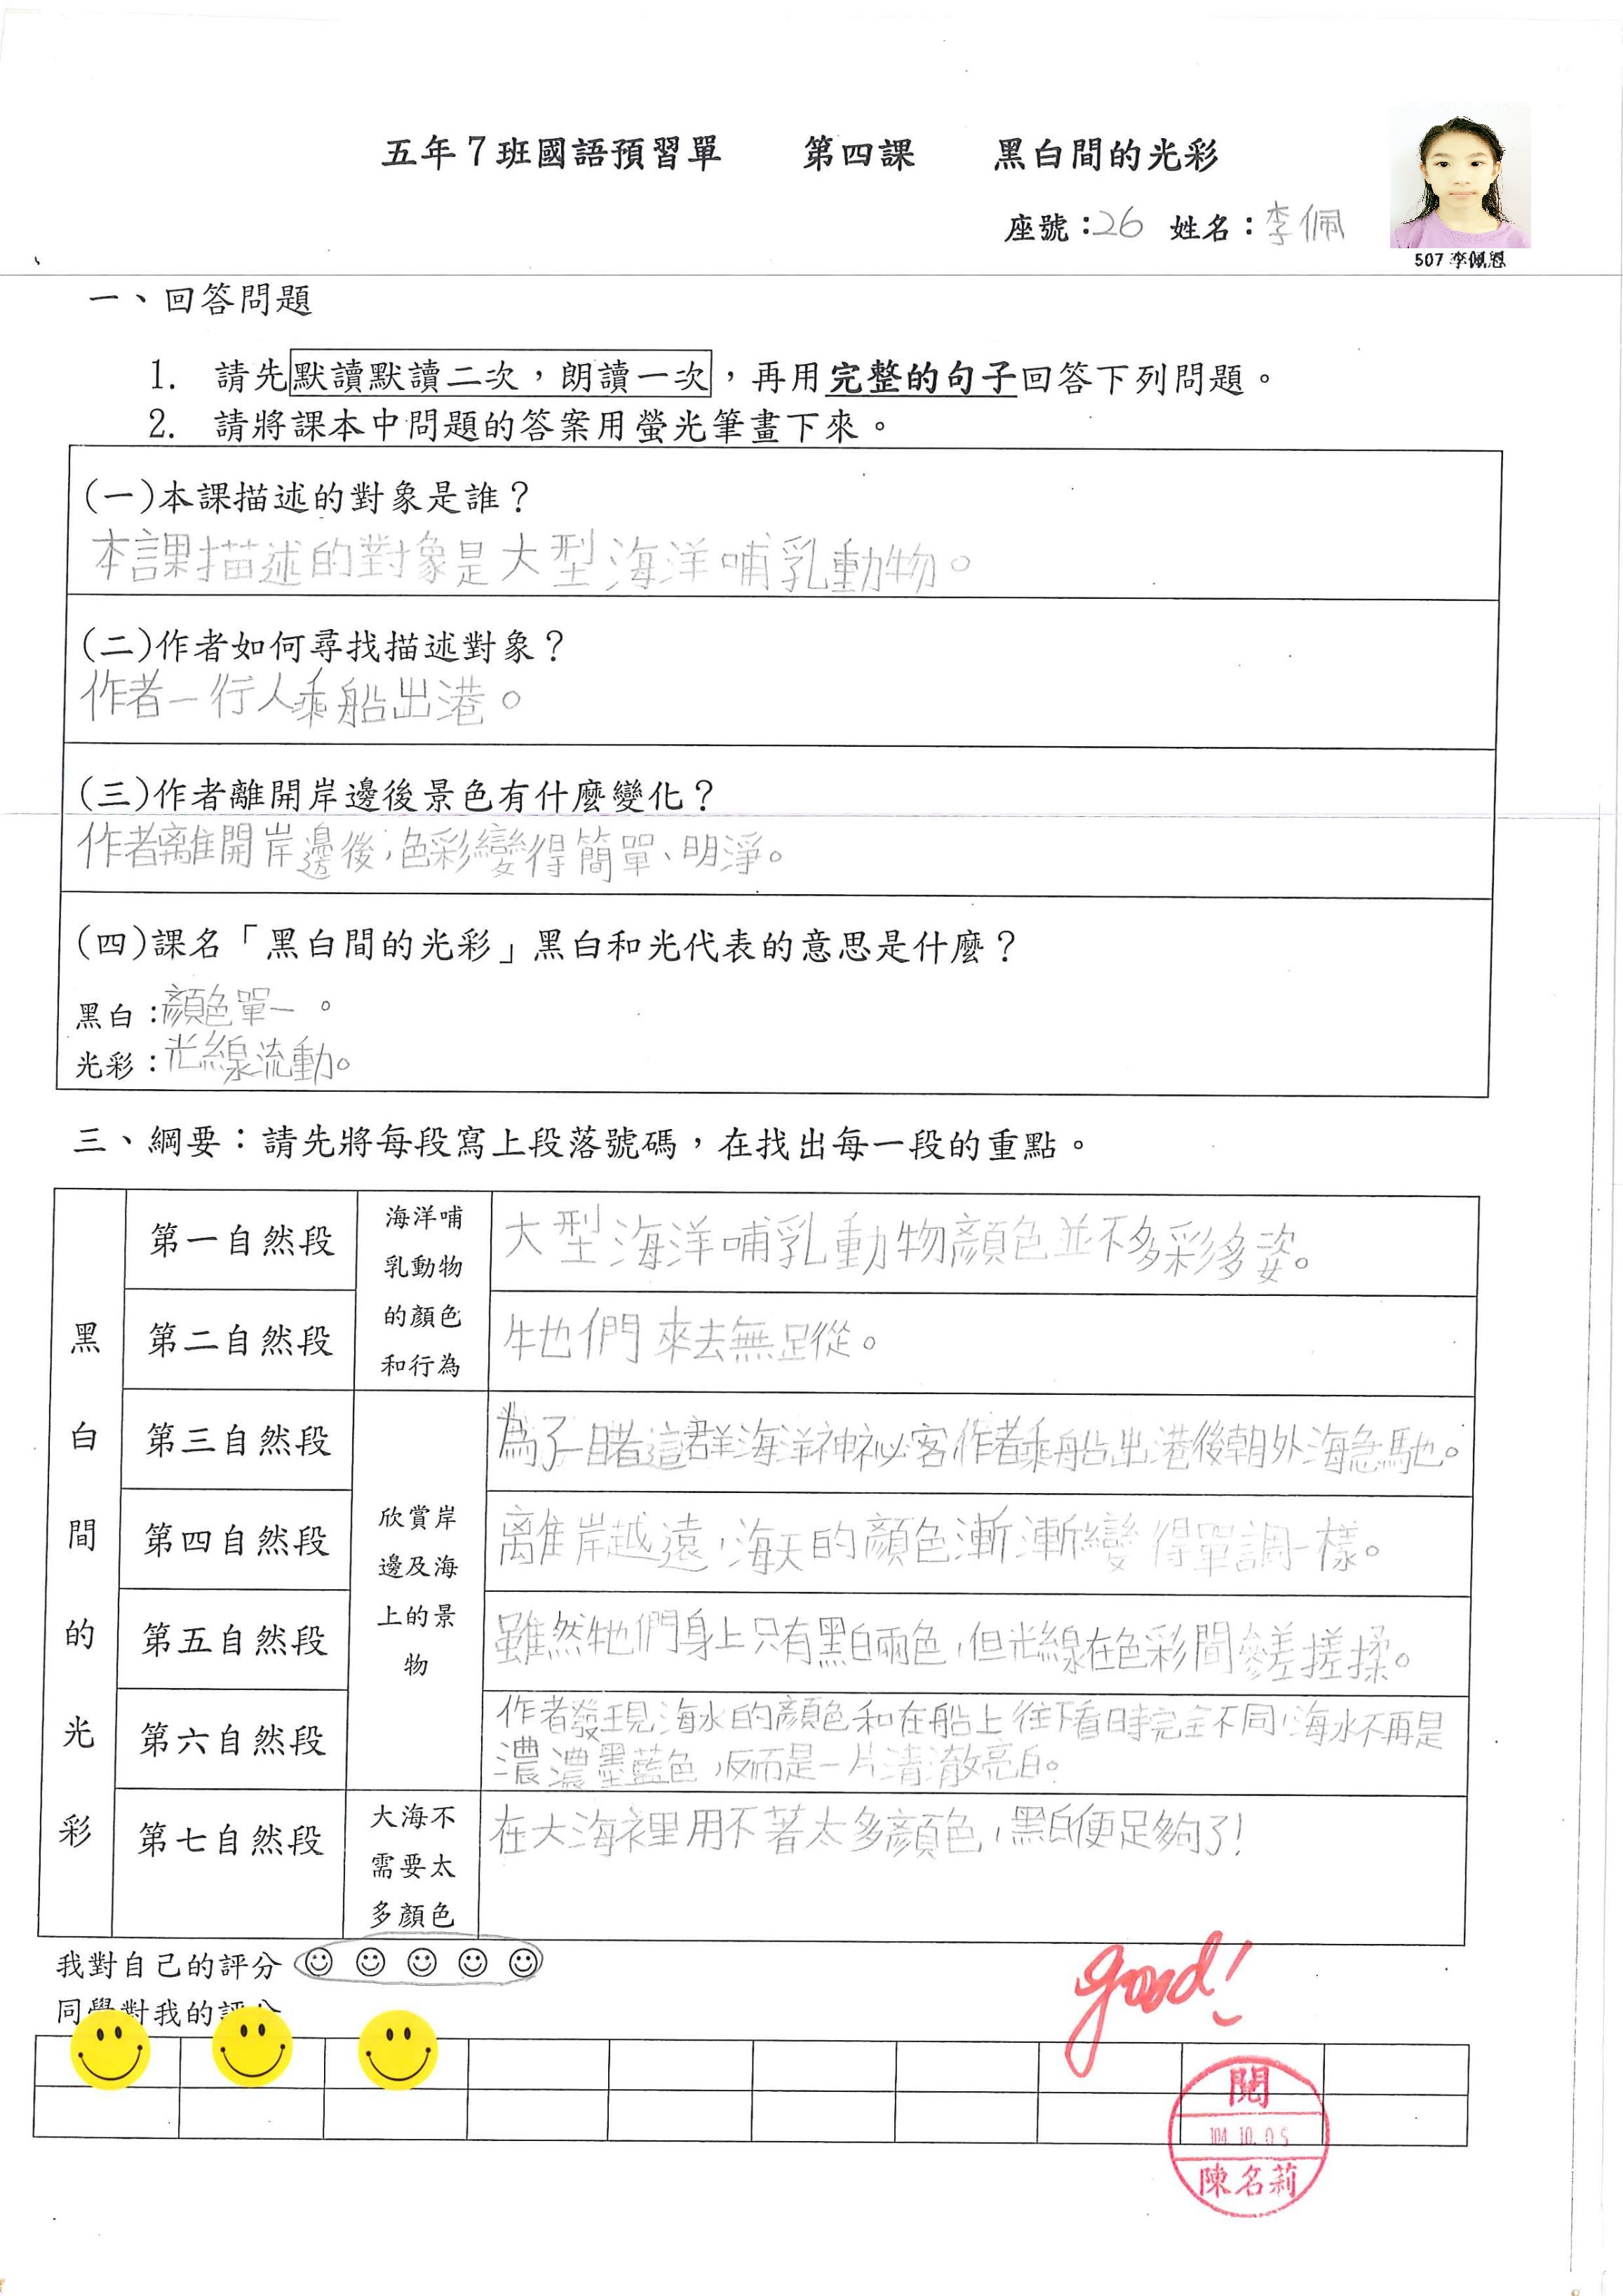 五年7班國語預習單 第四課 黑白間的光彩
座號：26 姓名：李佩
507 李佩恩
一、回答問題
1. 請先默讀默讀二次，朗讀一次，再用完整的句子回答下列問題。
2. 請將課本中問題的答案用螢光筆畫下來。
(一)本課描述的對象是誰？
本課描述的對像是大型海洋哺乳動物。
(二)作者如何尋找描述對象？
作者一行人乘船出港。
(三)作者離開岸邊後景色有什麼變化？
作者離開岸邊後，色彩變得簡單、明淨。
(四)課名「黑白間的光彩」黑白和光代表的意思是什麼？
黑白：顏色單一。
光彩：光線流動。
三、綱要：請先將每段寫上段落號碼，在找出每一段的重點。
黑白間的光彩
第一自然段
海洋哺乳動物的顏色和行為
大型海洋哺乳動物顏色並不多彩多姿。
第二自然段
牠們來去無足從。
第三自然段
欣賞岸邊及海上的景物
為了一睹這群海洋神祕客，作者乘船出港後朝外海急馳。
第四自然段
離岸越遠，海天的顏色漸漸變得單調一樣。
第五自然段
雖然牠們身上只有黑白兩色，但光線在色彩間參差搓揉。
第六自然段
作者發現海水的顏色和在船上往下看時完全不同，海水不再是
濃濃墨藍色，反而是一片清澈亮白。
第七自然段
大海不需要太多顏色
在大海裡用不著太多顏色，黑白便足夠了！
我對自己的評分 ☺ ☺ ☺ ☺ ☺
同學對我的評分
good!
閱
104.10.05
陳名莉